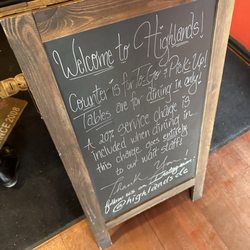 Welcome to Highlands!
Counter is for To-Go & Picks Up!
Tables are for dining in only!
A 20% service charge is
included when dining in
this charge goes entirely
to our wait staff!
Thank You
follow us on Instagram
@highlandsslc